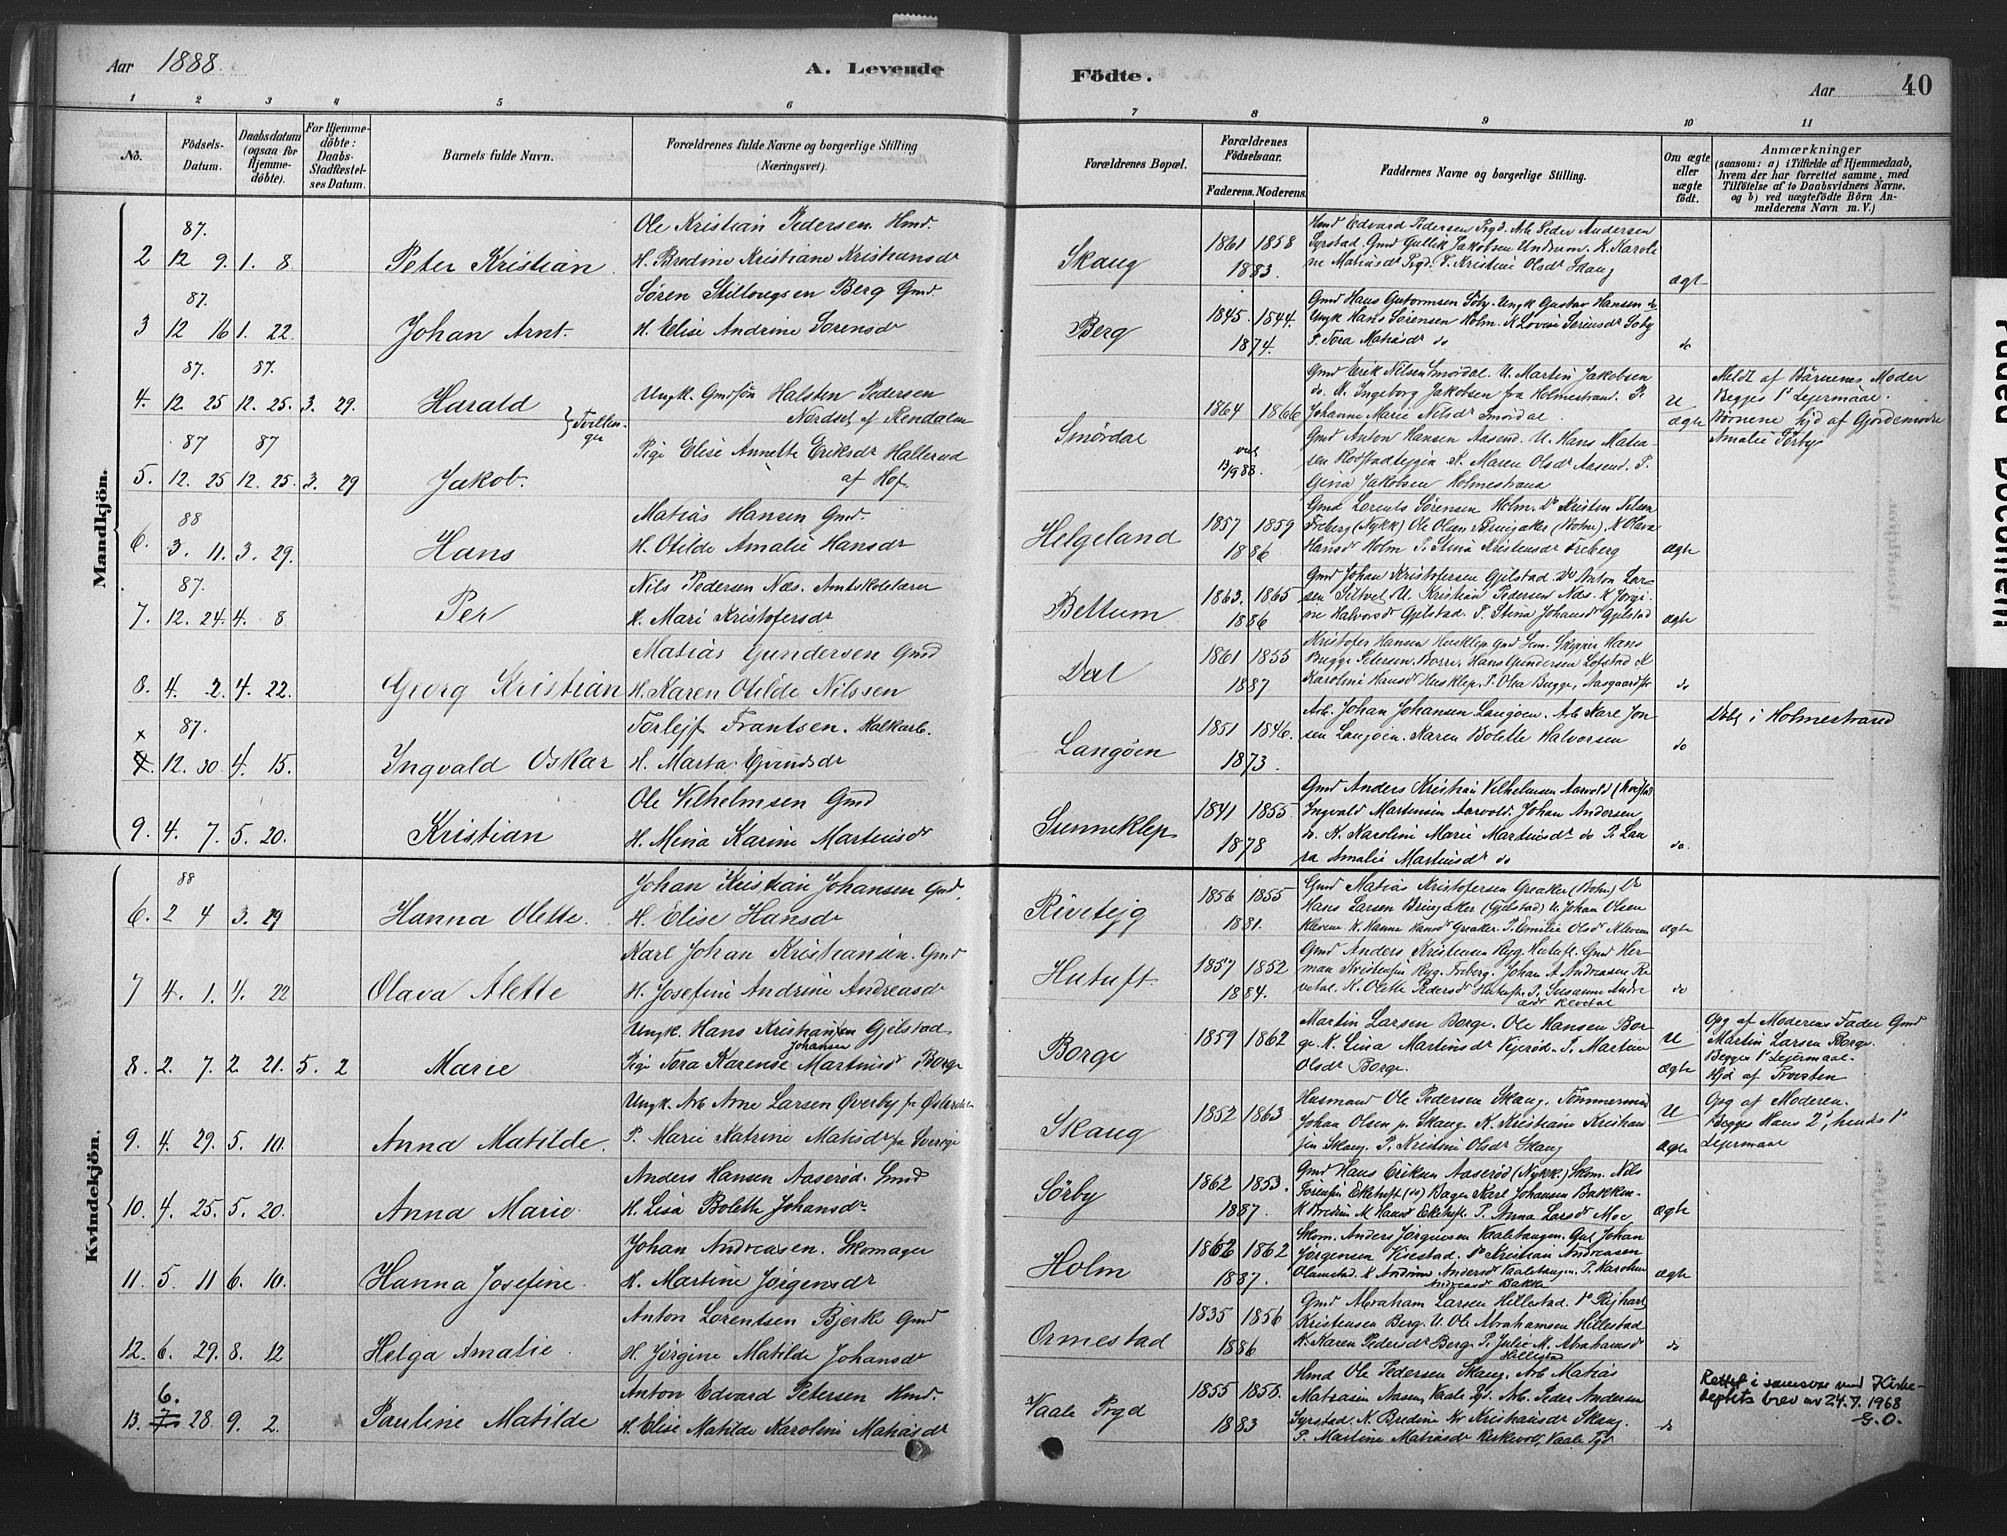 Aar 1888.
A. Levende
Födte.
Aar
40
1 2 3 4 5 6 7 8 9 10 11
No.
Födsels-Datum.
Daabsdatum (ogsaa for Hjemme-döbte).
For Hjemme-döbte: Daabs-Stadfæstel-ses Datum.
Barnets fulde Navn.
Forældrenes fulde Navne og borgerlige Stilling (Næringsvei).
Forældrenes Bopæl.
Forældrenes Födselsaar.
Faderens. Moderens.
Faddernes Navne og borgerlige Stilling.
Om ægte eller uægte födt.
Anmærkninger
(saasom: a) i Tilfælde af Hjemmedaab,
hvem der har forrettet samme, med
Tilföielse af to Daabsvidners Navne.
og b) ved uægtefödte Börn An-
melderens Navn m. V.)
Mandkjön.
87.
2 12 9. 1. 8. Peter Kristian
Ole Kristian Pedersen Hmd.
H. Bredine Kristiane Kristiansdr
Skaug
1861 1858
1883.
Hmd Edvard Pedersen Pryd. Arb Peder Andersen
Syrstad. Gmd Gullik Jakobsen Undrum. K. Karoli
ne Matiasdr Prgd. P. Kristine Olsdr Skaug
ægte
87.
3 12 16 1. 22. Johan Arnt.
Søren Stillougsen Berg Gmd.
H. Elise Andrine Sorensdr
Berg
1845. 1844.
1874.
Gmd Hans Gutormsen Söby. Ungk Gustav Hansen do
Ungk Hans Sörensen Holm. K Lovise Sörensdr Soby
P. Tora Matiasdr do
do
87. 87.
4. 12. 25 12. 25. 3. 29. Harald
Tvillin-
ger
Ungk. Gmdssøn Halsten Pedersen
Nordset af Rendalen
Smördal
1864 1866
Gmd Erik Nilsen Smördal. U. Martin Jakobsen
do. K. Ingeborg Jakobsen fra Holmestrand. P.
Johanne Marie Nilsdr Smördal.
U
ægte
Meldt af Börnenes Moder
Begges 1ste Lejermaal.
Börnene hjd af Gjordemoder
Amalie Förby
87 87
5. 12. 25 12. 25. 3. 29 Jakob.
Pige Elise Annette Eriksdr Hallerud
af Hof.
Gmd Anton Hansen Aasend. U. Hans Matia-
sen Rodstadeggen K. Maren Olsdr Aasend. P.
Gina Jakobsen Holmestrand
88
6. 3. 11. 3. 29. Hans
Matias Hansen Gmd.
H. Otilde Amalie Hansdr
Helgeland
1857 1859
1886
Gmd Lorents Sörensen Holm. Do Kristen Nilsen
Freberg (Nykk) Ole Olsen Bruigaker (Bohm). K Olava
Hansdr Holm P. Stina Kristensdr Freberg
ægte
87.
7. 12. 24. 4. 8 Per
Nils Pedersen Næs. Amtskolelærer
H. Mari Kristofersdr
Bettum
1863. 1865
1886
Gmd Johan Kristofersen Gjelstad. Do Anton Lar-
sen Siltvet U. Kristian Pedersen Næs. K Jorgi-
ne Halvorsdr Gjelstad. P. Stina Johansdr Gjelstad
ægte
8. 4. 2. 4. 22. Georg Kristian
Matias Gundersen Gmd
H. Karen Otilde Nilssen
Dal
1861 1855
1887
Kristofer Hansen Huseklep Gmd Sem. Skipper Hans
Bugge Petersen. Borre. Hans Gundersen Lofstad K
Karoline Hansdr Husklep. P. Olea Bugge, Aasgaardstr
do
87.
x
7. 12. 30 4. 15. Ingvald Oskar
Torlejf Frantsen. Kalkarb.
H. Marta Ejvindsdr
Langöen
1851 1846.
1873.
Arb. Johan Johansen Langöen. Arb Karl Jon
sen Langöen. Karen Bolette Halvorsen
do
Döbt i Holmestrand
9. 4. 7. 5. 20. Kristian
Ole Vilhelmsen Gmd
H. Mina Karine Martinsdr
Sunneklep
1841 1855
1878
Gmd Anders Kristian Vilhelmsen Aarvold (Rodstad
Ingvald Martinsen Aarvold. Johan Andersen
do. K. Karoline Marie Martinsdr do P. Lau
ra Amalie Martinsdr do
do
Kvindekjön.
88
6. 2 4 3. 29 Hanna Olette.
Johan Kristian Johansen Gmd.
H. Elise Hansdr
Rivetejg
1856 1855
1881.
Gmd Matias Kristofersen Greaker (Bohm) Do
Hans Larsen Bruigaker (Gjelstad) U. Johan Olsen
Klevene K. Hanne Hansdr Greaker. P. Emilie Olsdr Kleven
ægte
7 4. 1. 4. 22 Olava Alette
Karl Johan Kristiansen. Gmd
H. Josefine Andrine Andreasdr
Hutuft
1857 1852
1884.
Gmd Anders Kristensen Ryg Hutuft. Gmd Her-
man Kristensen Ryg. Freberg. Johan A. Andreasen Re
vetal. K. Olette Pedersdr Hutuft P. Susanne Andre
asdr Revetal
do
8. 2. 7. 2. 21. 5. 2 Marie
Ungk. Hans Kristiansen Gjelstad.
Johansen
Pige Tora Karense Martinsdr Borge
Borge
1859 1862
Martin Larsen Borge. Ole Hansen Bor-
ge. K. Lina Martinsdr Kjeröd. P. Martine
Olsdr Borge.
U
ægte
Opg af Moderens Fader Gmd
Martin Larsen Borge.
Begges 1ste Lejermaal.
Hjd af Provsten
9. 4. 29. 5. 10. Anna Matilde.
Ungk. Arb Arne Larsen Øverby fra Østerdalen
P. Marie Katrine Matisdr fra Sverige
Skaug
1852 1863
Husmand Ole Pedersen Skaug. Tömmermand
Johan Olsen p. Skaug. K. Kristiane Kristian
sen Skaug. P. Kristine Olsdr Skaug
U
ægte
Opg af Moderen.
Begges Hans 2det, hendes 1ste
Lejermaal
10. 4. 25. 5. 20. Anna Marie.
Anders Hansen Aaseröd. Gmd
H. Lisa Bolette Johansdr
Sörby
1862 1853.
1887.
Gmd Hans Eriksen Aaseröd (Nykk.) Skom. Nils
Sörensen Eketuft (do) Bager Karl Johansen Bakken.
K Bredine M. Hansdr Eketuft. P. Anna Larsdr Moe
ægte
11. 5. 11 6. 10. Hanna Josefine.
Johan Andreasen. Skomager
H. Martine Jørgensdr
Holm
1862 1862
1887.
Skom. Anders Jörgensen Vaaletangen. Gmd Johan
Jörgensen Viestad. Do Kristian Andreasen
Olumstad. K Andrine Andersdr Vaaletangen. P. Karoline
Andreasdr Bakke
ægte
12. 6. 29. 8. 12 Helga Amalie.
Anton Lorentsen Bjerke Gmd
H. Jörgine Matilde Johansdr
Ormestad
1835 1856
1886
Gmd Abraham Larsen Hillestad. Do Rejhart
Kristensen Berg. U. Ole Abrahamsen Hillestad
K. Karen Pedersdr Berg. P. Julie M. Abrahamsdr
Hillestad
do
6.
13. 7. 28. 9. 2. Pauline Matilde
Anton Edvard Petersen Hmd.
H. Elise Matilde Karoline Matiasdr
Vaale Prgd
1855 1858.
1883
Hmd Ole Pedersen Skaug. Arb Matias
Matiasen Aasen, Vaale Pgd. Arb. Peder Andersen
Syrstad. K. Bredine Kr Kristiansdr Skaug.
P. Martine Matiasdr Kirkevold, Vaale Pgd
do
Rettet i samsvar med Kirke-
deptets brev av 24.7.1968
G.O.
Faded Document